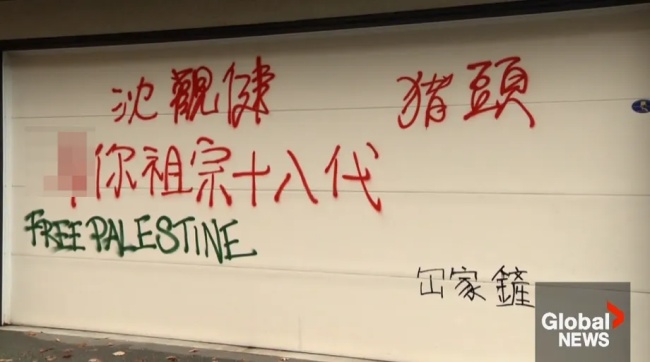 沈觀健 猪頭
你祖宗十八代
FREE PALESTINE
冚家鏟
Global
NEWS